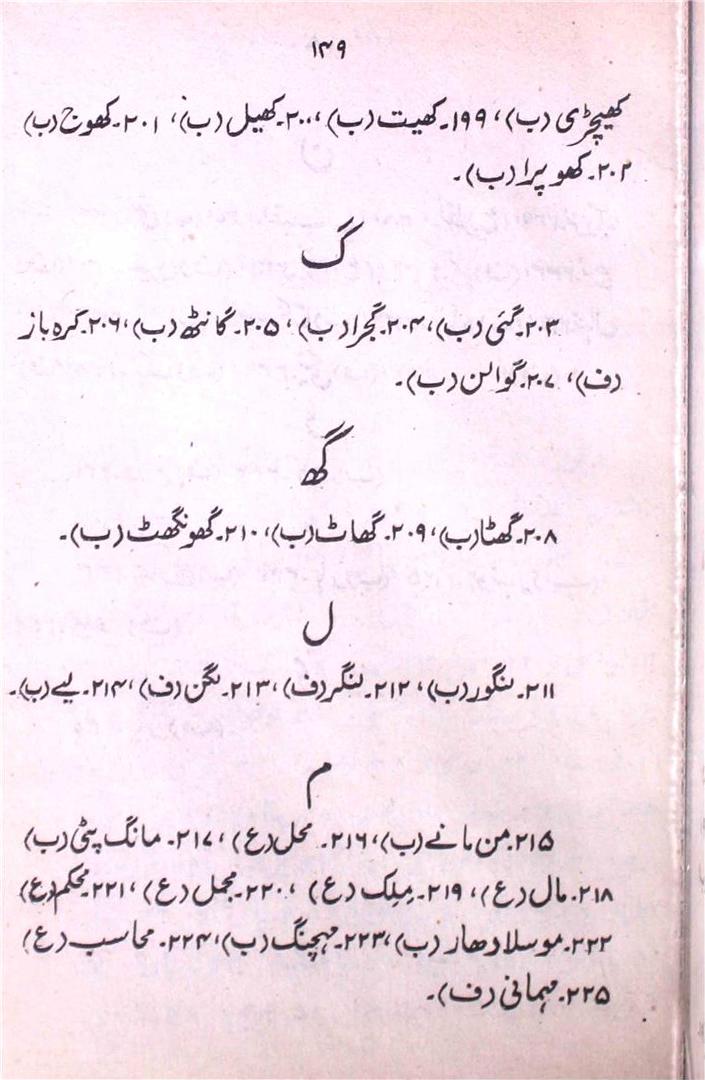 ۱۴۹
کھیچڑی (ب)، ۱۹۹۔کھیت (ب)، ۲۰۰۔کھیل (ب)، ۲۰۱۔کھوج (ب)
۲۰۲۔کھوپرا (ب)۔
گ
۲۰۳۔گئی (ب)، ۲۰۴۔گجرا (ب)، ۲۰۵۔گانٹھ (ب)، ۲۰۶۔گرہ باز
(ف)، ۲۰۷۔گوالن (ب)۔
گھ
۲۰۸۔گھٹا (ب)، ۲۰۹۔گھاٹ (ب)، ۲۱۰۔گھونگھٹ (ب)۔
ل
۲۱۱۔لنگور (ب)، ۲۱۲۔لنگر (ف)، ۲۱۳۔لگن (ف)، ۲۱۴۔لیے (ب)۔
م
۲۱۵۔من مانے (ب)، ۲۱۶۔محل (ع)، ۲۱۷۔مانگ پٹی (ب)
۲۱۸۔مال (ع)، ۲۱۹۔مِلک (ع)، ۲۲۰۔مجمل (ع)، ۲۲۱۔محکم (ع)
۲۲۲۔موسلا دھار (ب)، ۲۲۳۔ (ب)، ۲۲۴۔محاسب (ع)
۲۲۵۔مہمانی (ف)۔